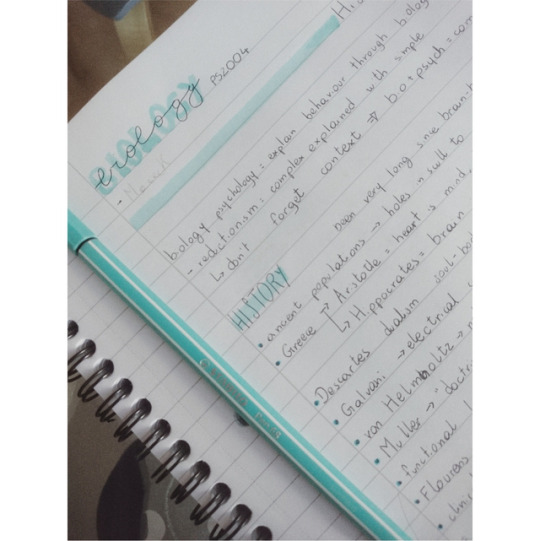 PS2004
biology psychology: explain behaviour through biology
- reductionism: complex explained with simple
↳ don't forget context => bio + psych = com
HISTORY
been very long since brain-
• ancient populations → holes in skull to
• Greece → Aristotle = heart is mind,
↳ Hippocrates = brain
• Descartes dualism soul-bo
• Galvani → electrical
• von Helmboltz →
• Muller → doctr
• functional
• Flourens
• clinic